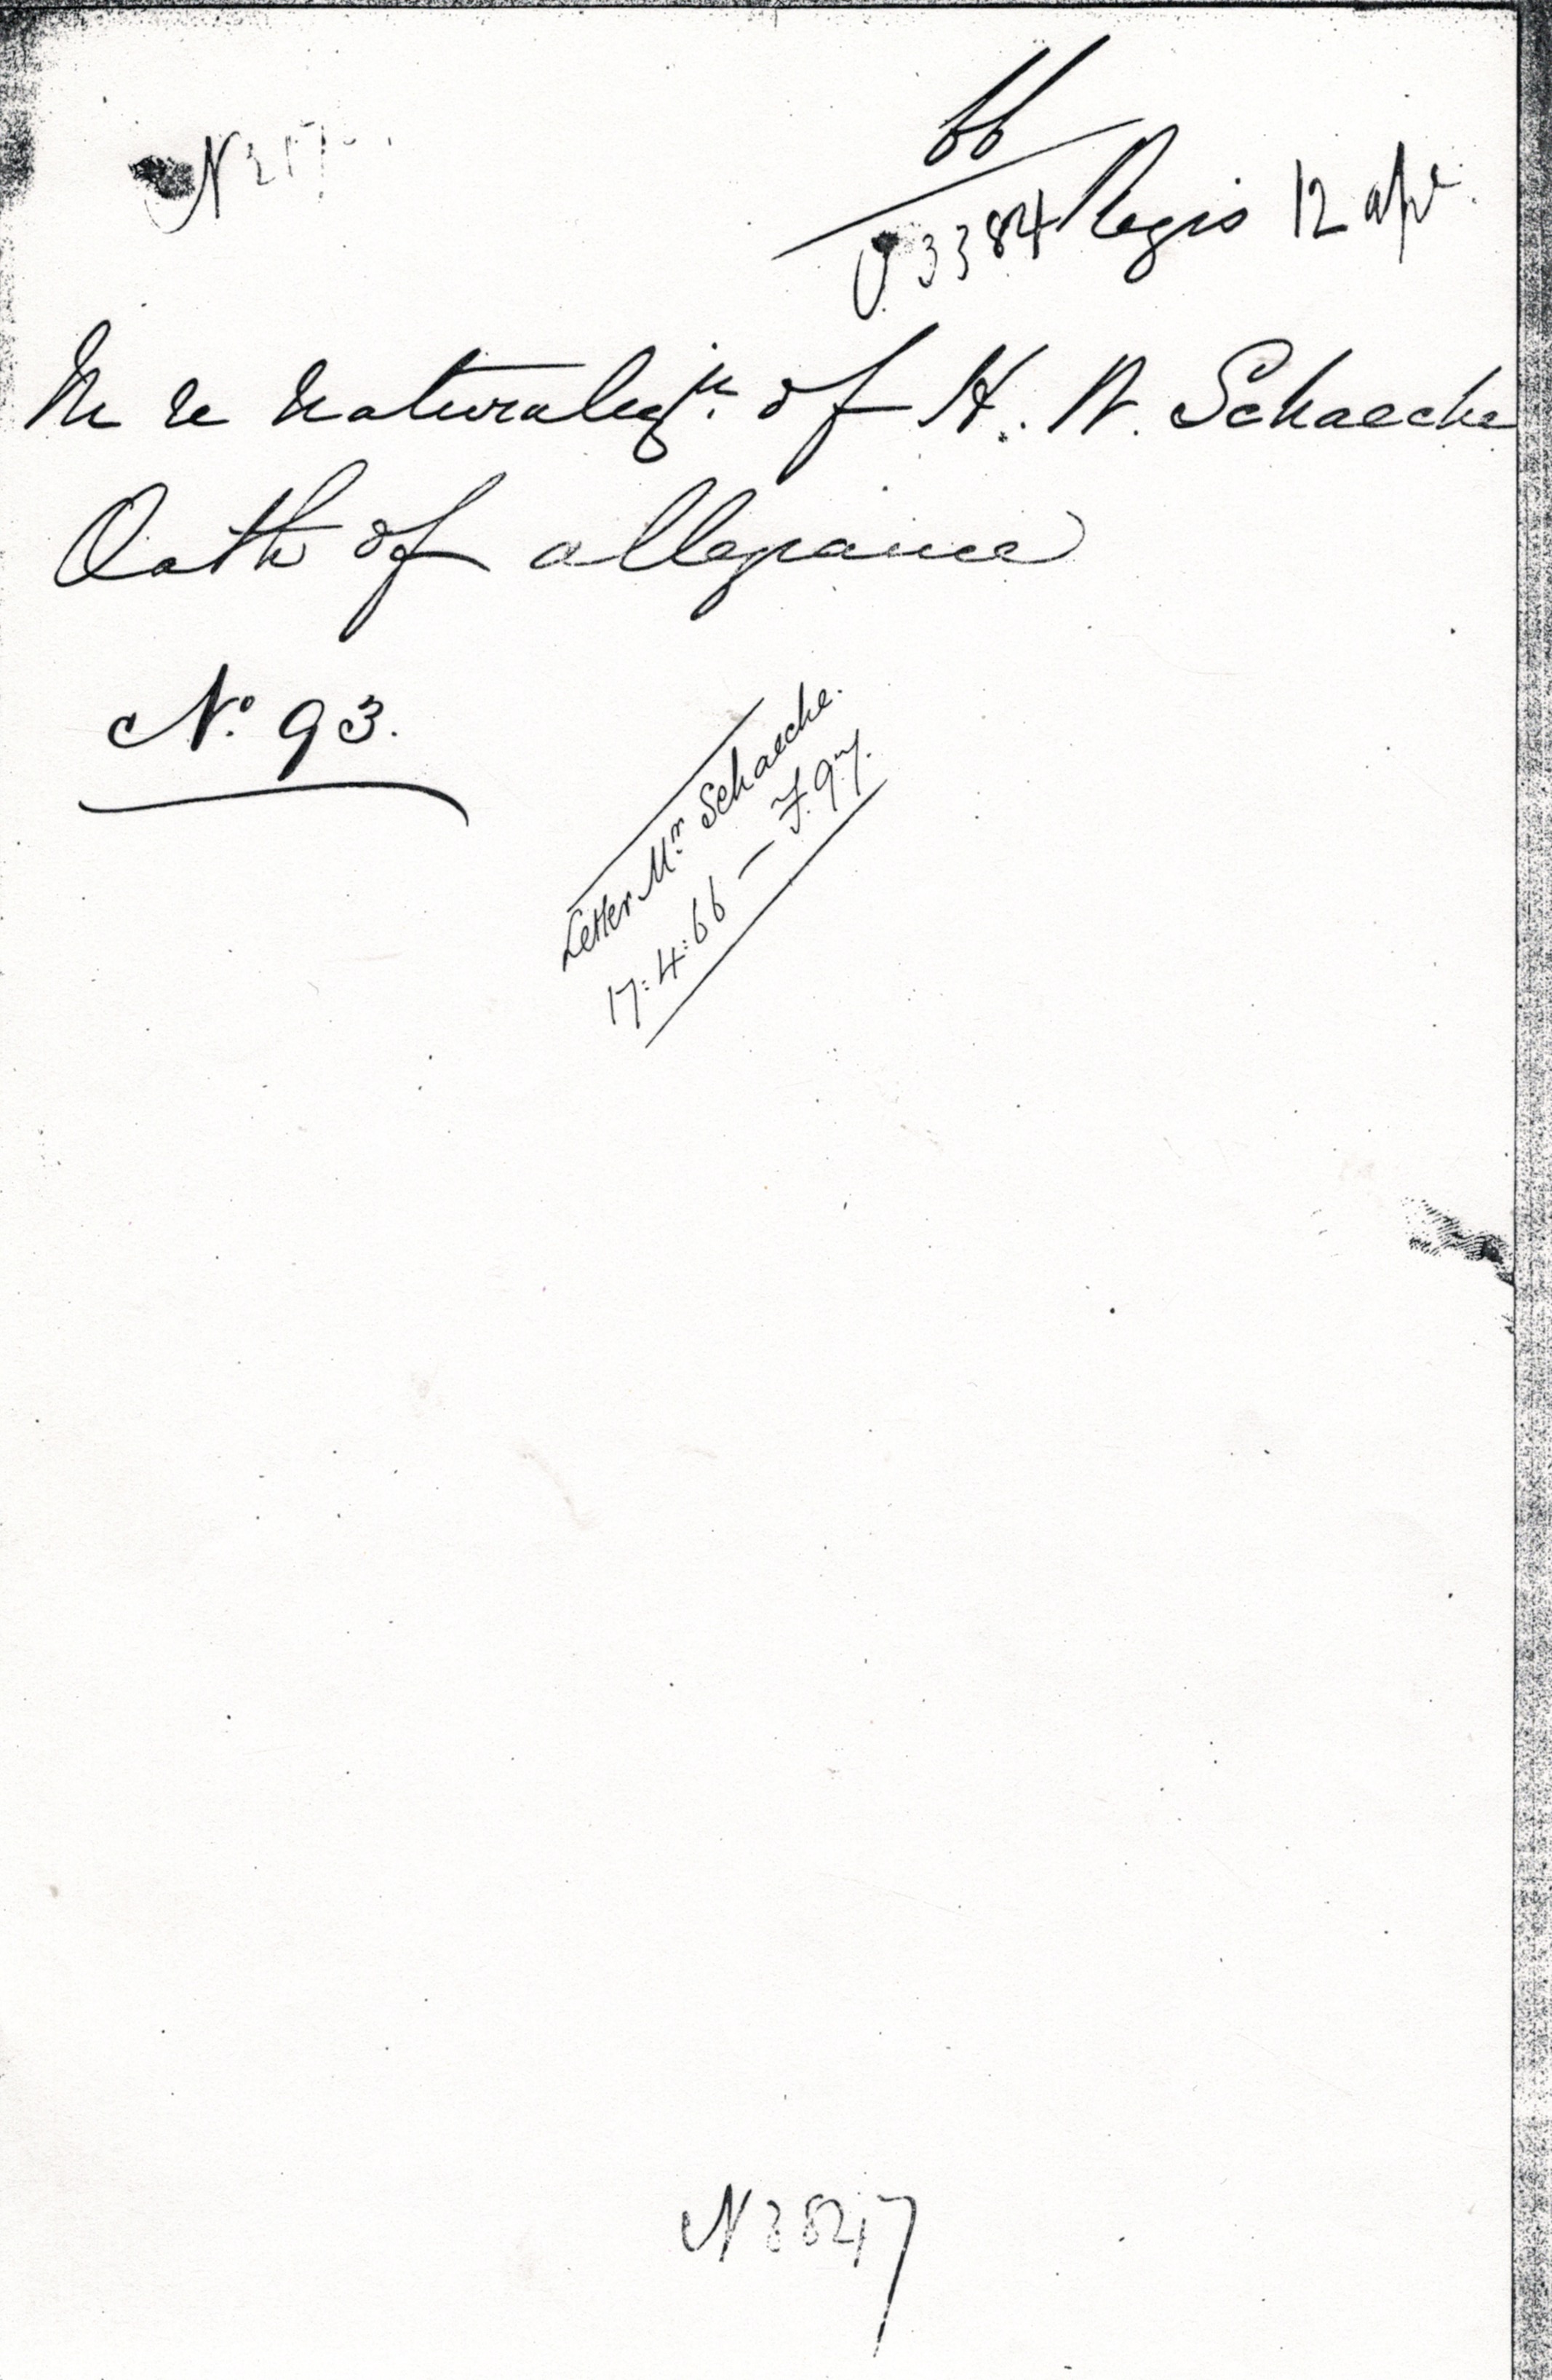 66
3384 Regis 12 apr.
In re Naturalizn. of H. N. Schaeche
Oath of allegiance
No. 93.
Letter Mr. Schaeche.
17:4:66 —
N 3